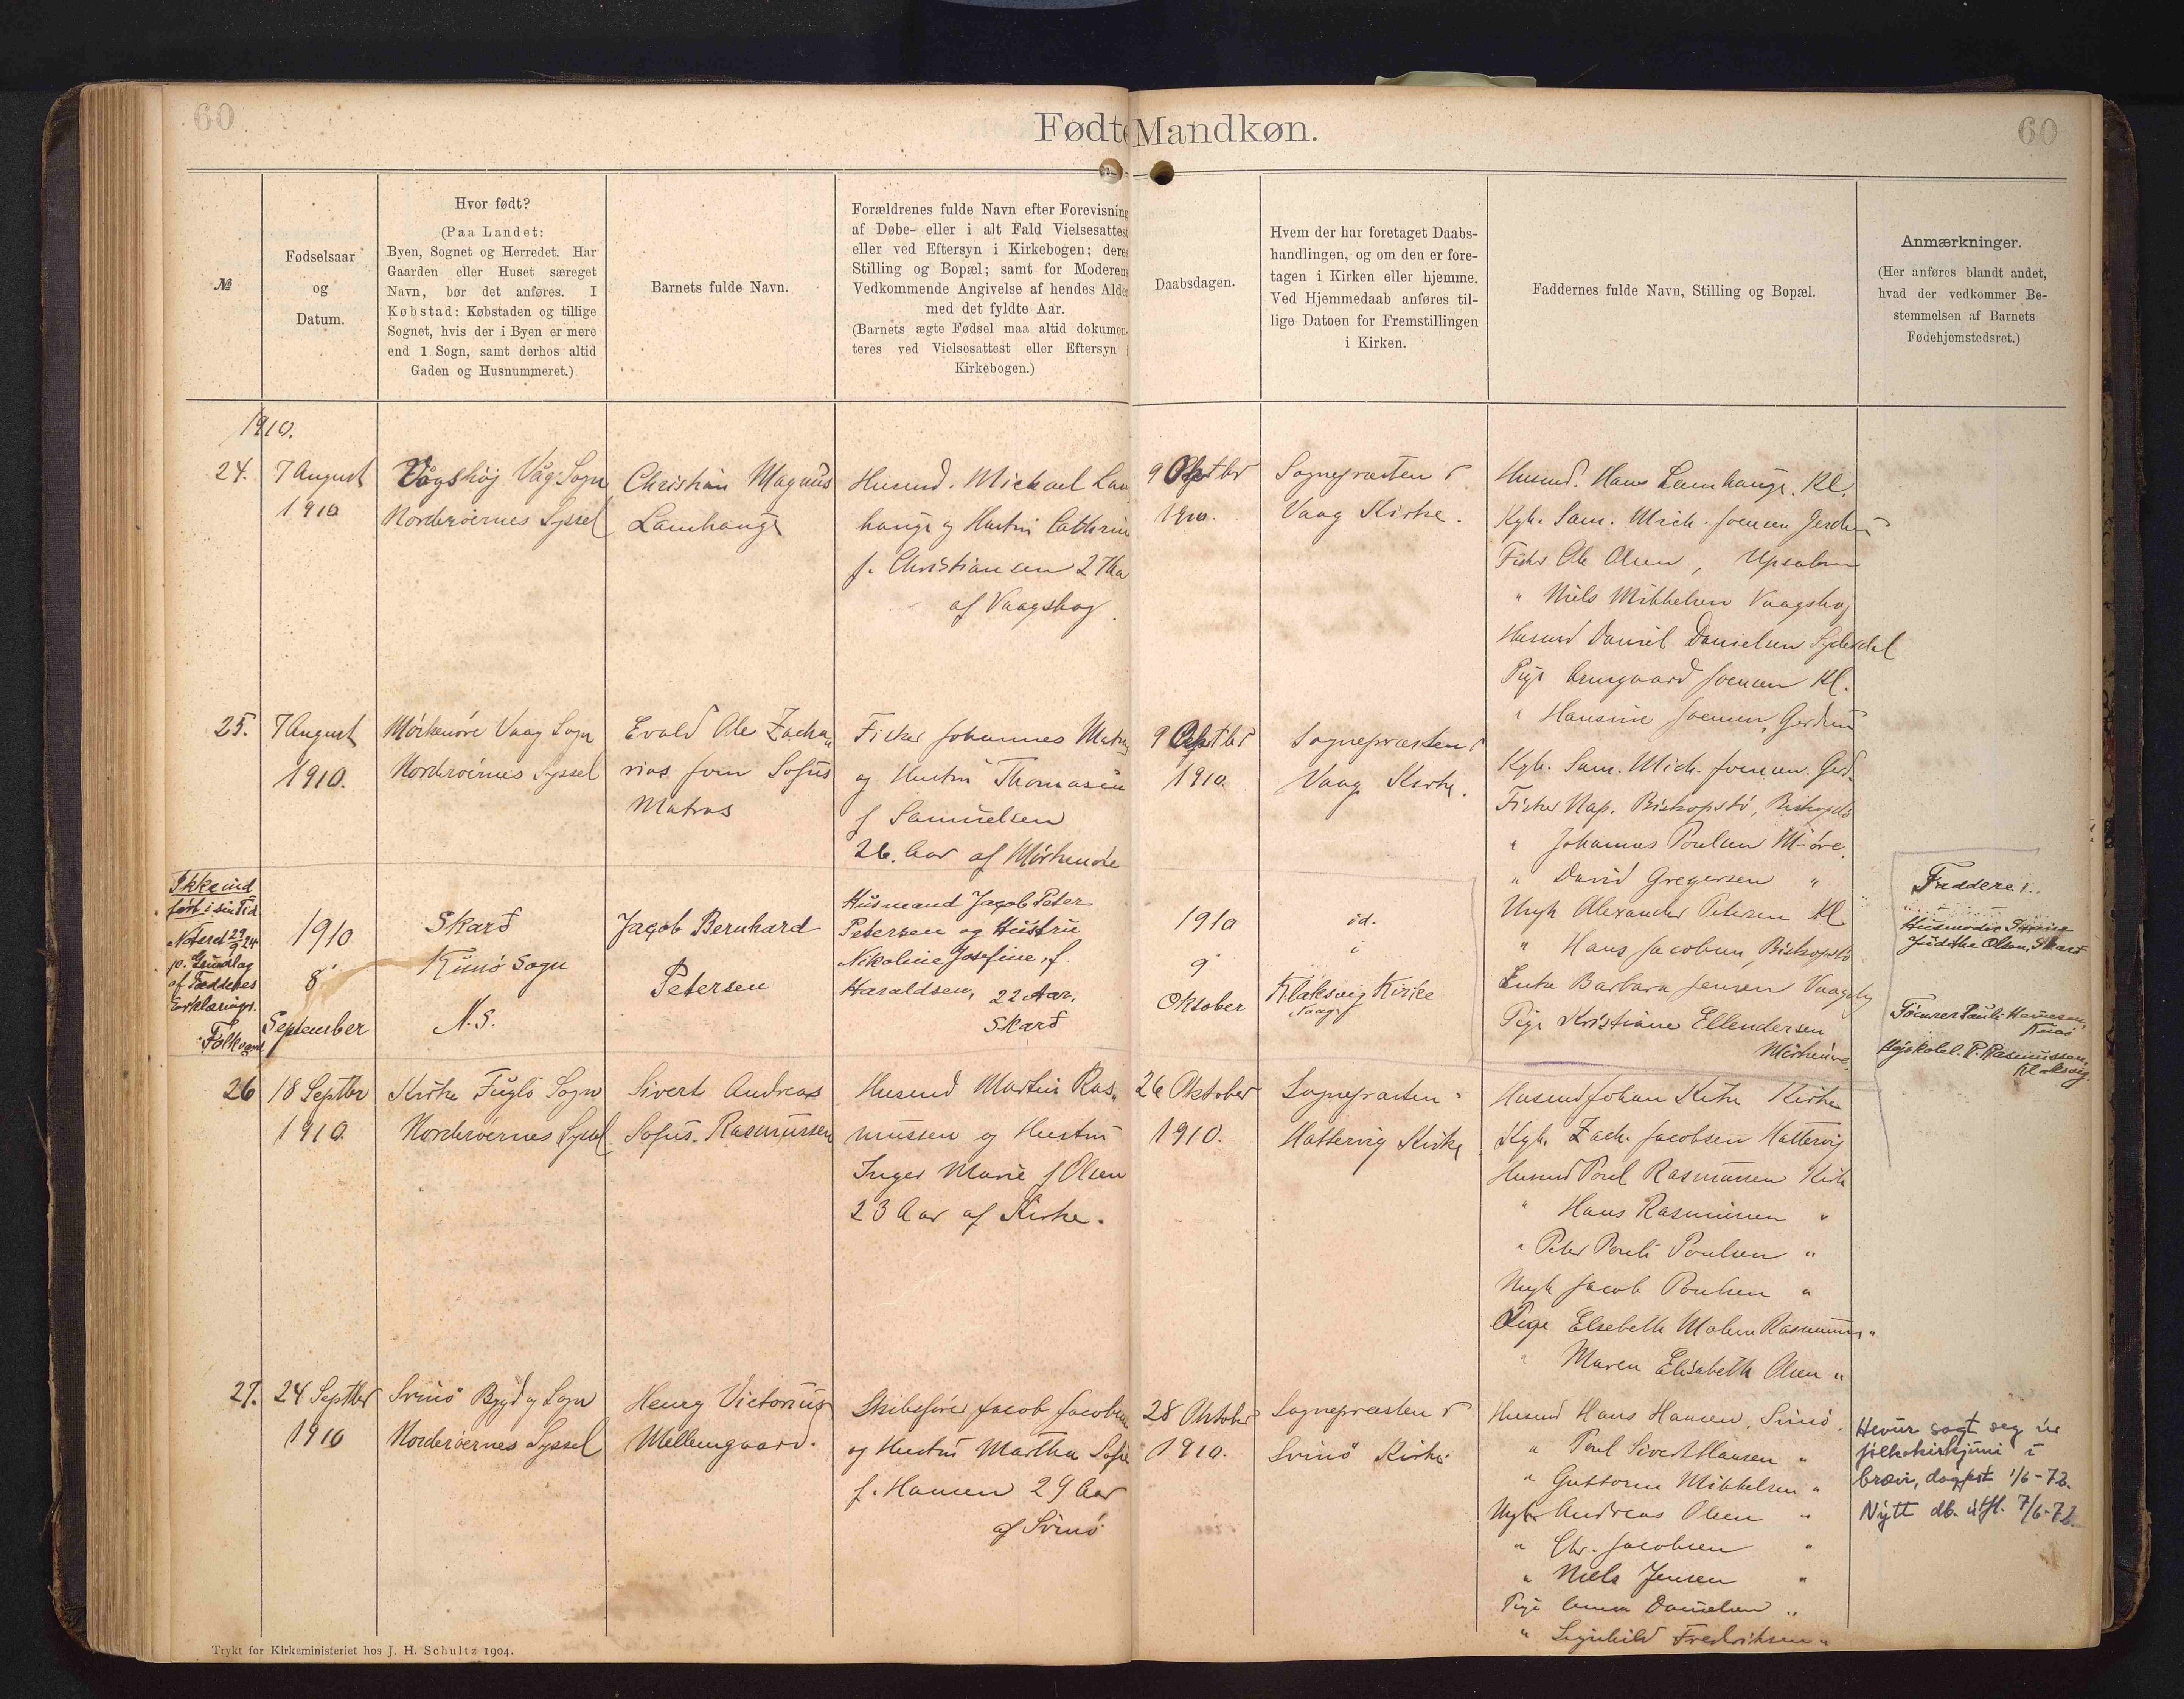 60
Fødte Mandkøn.
60
№
Fødselsaar
og
Datum.
Hvor født?
(Paa Landet:
Byen, Sognet og Herredet. Har
Gaarden eller Huset særeget
Navn, bør det anføres. I
Købstad: Købstaden og tillige
Sognet, hvis der i Byen er mere
end 1 Sogn, samt derhos altid
Gaden og Husnummeret.)
Barnets fulde Navn.
Forældrenes fulde Navn efter Forevisning
af Døbe- eller i alt Fald Vielsesattest
eller ved Eftersyn i Kirkebogen; deres
Stilling og Bopæl; samt for Moderens
Vedkommende Angivelse af hendes Alder
med det fyldte Aar.
(Barnets ægte Fødsel maa altid dokumen-
teres ved Vielsesattest eller Eftersyn i
Kirkebogen.)
Daabsdagen.
Hvem der har foretaget Daabs-
handlingen, og om den er fore-
tagen i Kirken eller hjemme.
Ved Hjemmedaab anføres til-
lige Datoen for Fremstillingen
i Kirken.
Faddernes fulde Navn, Stilling og Bopæl.
Anmærkninger.
(Her anføres blandt andet,
hvad der vedkommer Be-
stemmelsen af Barnets
Fødehjemstedsret.)
1910.
24.
7 August
1910
Vågshøj Våg Sogn
Norderøernes Syssel
Christian Magnus
Lamhauge
Husmd. Michael Lam
hauge og Hustru Cathrin
f. Christiansen 27 Aar
af Vaagshøj.
9
1910.
Sognepræsten i
Vaag Kirke.
Husmd. Hans Lamhauge. Kl.
Kgb. Sam. Mich. Joensen
Fisker Ole Olsen,
" Niels Mikkelsen Vaagshøj
Husmd Daniel Danielsen
Pige Joensen Kl.
" Hansine Joensen,
25.
7 August
1910.
Mørkenøre Vaag Sogn
Norderøernes Syssel
Evald Ole Zacha
rias Joen Sofus
Matras
Fisker Johannes Matras
og Hustru Thomasine
f Samuelsen
26. Aar af Mørkenøre
9
1910.
Sognepræsten i
Vaag Kirke.
Kgb. Sam. Mich. Joensen.
Fisker Nap. Biskopstø,
" Johannes Poulsen M-øre.
" David Gregersen "
Ungk Alexander Petersen Kl
" Hans Jacobsen, Biskopstø
Enke Barbara Jensen
Pige Kristiane Ellendersen
Mørkenøre
Ikke ind
ført i sin Tid
Noteret 29/9 24
p. Grundlag
af Faddernes
Erklæring.
1910
8
September
Skarð
Kunø Sogn
N.S.
Jacob Bernhard
Petersen
Husmand Jacob Peter
Petersen og Hustru
Nikoline Josefine, f.
Haraldsen, 22 Aar,
Skarð
1910
9
Oktober
id.
i
Klaksvig Kirke
Vaag
Faddere:
Husmoder
Judithe Olsen, Skarð
Pauli Hansen,
Kunø
Højskolel. P. Rasmussen,
Klaksvig.
26
18 Septbr
1910.
Kirke Fuglø Sogn
Norderøernes Syssel
Sivert Andreas
Sofus. Rasmussen
Husmd Martin Ras
mussen og Hustru
Inger Marie f Olsen
23 Aar af Kirke.
26 Oktober
1910.
Sognepræsten i
Hattervig Kirke
Husmd Johan Kirke
Kgb. Zach. Jacobsen Hattervig
Husmd Poul Rasmussen Kirke
" Hans Rasmussen "
" Peter Pauli Poulsen "
Ungk Jacob Poulsen "
Pige Elsebeth Malene Rasmussen "
" Maren Elisabeth Olsen "
27.
24 Septbr
1910
Svinø Bygd og Sogn
Norderøernes Syssel
Henry Victorius
Mellemgaard.
Skibsfører Jacob Jacobsen
og Hustru Martha Sofie
f. Hansen 29 Aar
af Svinø
28 Oktober
1910.
Sognepræsten i
Svinø Kirke
Husmd Hans Hansen, Svinø.
" Poul Sivert Hansen "
" Guttorm Mikkelsen "
Ungk. Andreas Olsen "
" Chr. Jacobsen "
" Niels Jensen "
Pige Anna Danielsen "
" Fredriksen "
Hevur sagt seg úr
fólkakirkjuni í
brævi, dagfest 1/6-72.
Nýtt db. útfl. 7/6-72.
Trykt for Kirkeministeriet hos J. H. Schultz 1904.